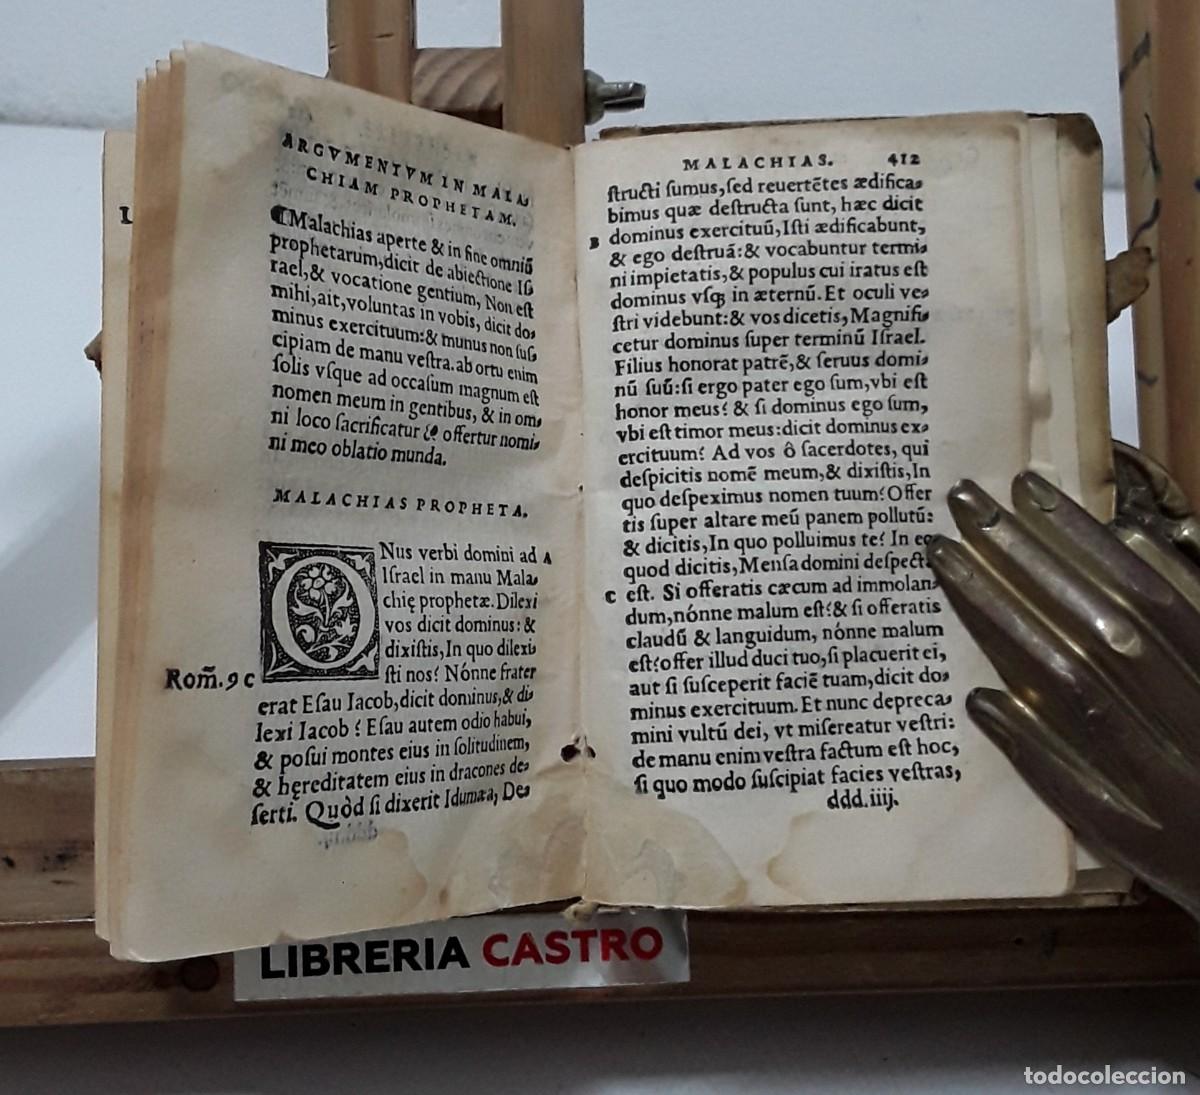 ARGVMENTVM IN MALA⸗
CHIAM PROPHETAM.
Malachias aperte & in fine omniū
prophetarum, dicit de abiectione Iſ⸗
rael, & vocatione gentium, Non eſt
mihi, ait, voluntas in vobis, dicit do⸗
minus exercituum: & munus non ſuſ⸗
cipiam de manu veſtra. ab ortu enim
ſolis vſque ad occaſum magnum eſt
nomen meum in gentibus, & in om⸗
ni loco ſacrificatur & offertur nomi⸗
ni meo oblatio munda.
MALACHIAS PROPHETA.
ONus verbi domini ad A
Iſrael in manu Mala⸗
chię prophetæ. Dilexi
vos dicit dominus: &
dixiſtis, In quo dilexi⸗
ſti nos? Nónne frater
Rom̄. 9 c
erat Eſau Iacob, dicit dominus, & di⸗
lexi Iacob? Eſau autem odio habui,
& poſui montes eius in ſolitudinem,
& hęreditatem eius in dracones de⸗
ſerti. Quòd ſi dixerit Idumæa, De⸗
MALACHIAS. 412
ſtructi ſumus, ſed reuertētes ædifica⸗
bimus quæ deſtructa ſunt, hæc dicit
B dominus exercituū, Iſti ædificabunt,
& ego deſtruā: & vocabuntur termi⸗
ni impietatis, & populus cui iratus eſt
dominus vſq; in æternū. Et oculi ve⸗
ſtri videbunt: & vos dicetis, Magnifi⸗
cetur dominus ſuper terminū Iſrael.
Filius honorat patrē, & ſeruus domi⸗
nū ſuū: ſi ergo pater ego ſum, vbi eſt
honor meus? & ſi dominus ego ſum,
vbi eſt timor meus: dicit dominus ex⸗
ercituum? Ad vos ô ſacerdotes, qui
deſpicitis nomē meum, & dixiſtis, In
quo deſpeximus nomen tuum? Offer
tis ſuper altare meū panem pollutū:
& dicitis, In quo polluimus te? In eo
quod dicitis, Menſa domini deſpecta
C eſt. Si offeratis cæcum ad immolan⸗
dum, nónne malum eſt? & ſi offeratis
claudū & languidum, nónne malum
eſt? offer illud duci tuo, ſi placuerit ei,
aut ſi ſuſceperit faciē tuam, dicit do⸗
minus exercituum. Et nunc depreca⸗
mini vultū dei, vt miſereatur veſtri:
de manu enim veſtra factum eſt hoc,
ſi quo modo ſuſcipiat facies veſtras,
ddd. iiij.
LIBRERIA CASTRO
todocoleccion